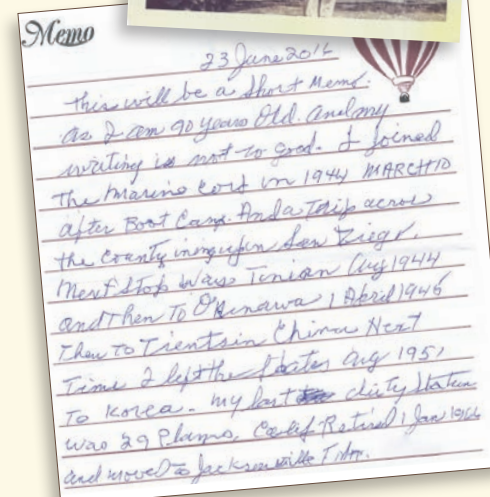 Memo
23 June 2016
This will be a Short Memo.
As I am 90 years Old. And my
writing is not to good. I joined
the Marine Corp in 1944 MARCH 10
after Boot Camp. And a Trip across
the county San Diego.
Next Stop was Tinian Aug 1944
and Then To Okinawa 1 April 1945
Then To Tientsin China Next
Time I left the States Aug 1951
To Korea. my last duty Station
was 29 Plams, Calif Retired 1 Jan 1966
and moved to Jacksonville